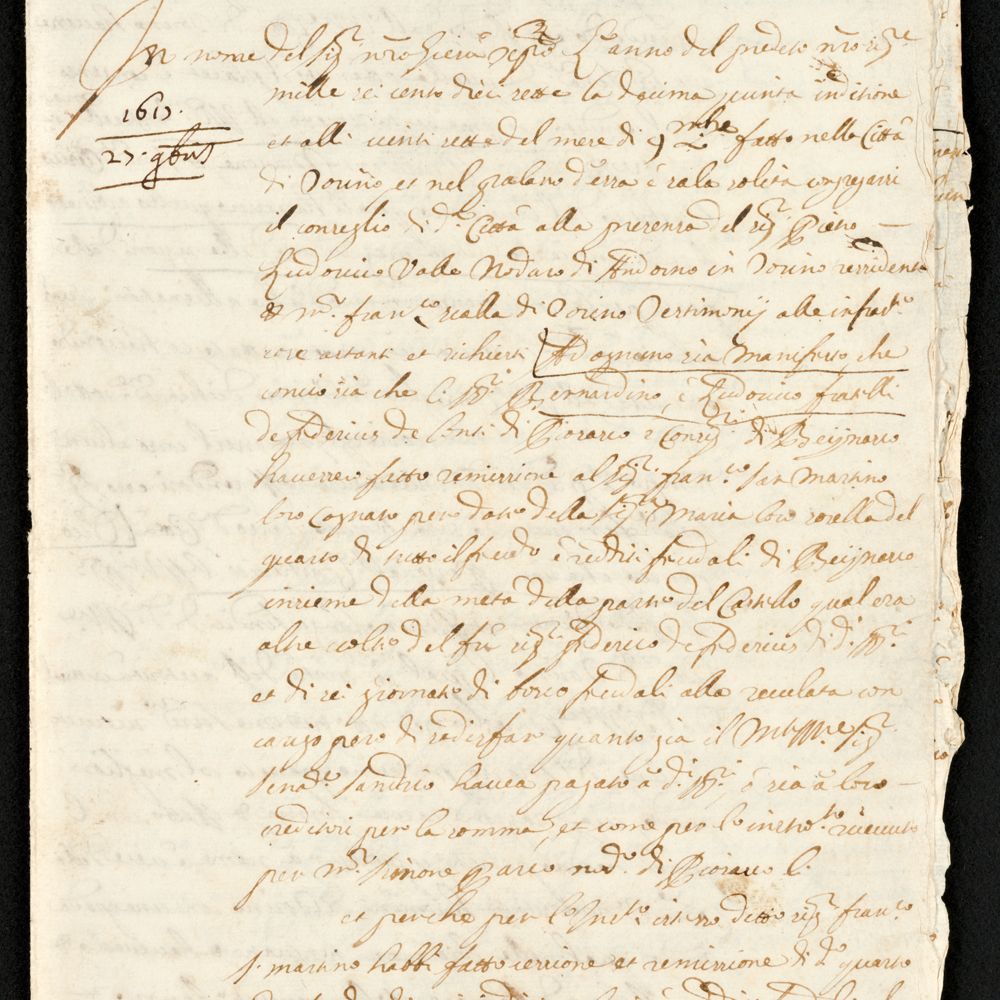 In nome del sig.r nro Giesu xpsto L'anno del predeto nro sig.re
1617.
mille sei cento dieci sette la decima quinta inditione
27. 9bris
et alli venti sette del mese di 9mbre fatto nella Città
di Torino et nel palano d'essa è sala solita congregarsi
il conseglio di d.a Città alla presenza del sig.r Pietro
Ludovico Valle Nodaro di Andorno in Torino ressidente
& m.r fran.co rialla di Torino Testimonij alle infras.te
cose astanti et richiesti Ad ognuno sia manifesto che
concio sia che li ss.ri Bernardino, è Ludovico fratelli
de federicis de Conti di Piosasco e Cons.ri di Beijnasco
havesseo fatto remissione al sig.r fran.co san Martino
loro Cognato per dote della sig.ra Maria loro sorella del
quarto di tutto il feudo è redditi feudali di Beijnasco
insieme della metà della parte del Castello qual era
altre volte del fù sig.r federico de federicis di d.i ss.ri
et di sei giornate di bosco feudali alla reculata con
carigo però di redisfar quanto già il Mto Ill.re sig.r
Senad.e Sandrio havea pagato à d.i ss.ri ò sia à loro
creditori per la somma, et come per l'instro.to riceuuto
per m.r Simone Pasco nod.o di Piosasco l.
et perche per l'Inst.o istesso ditto sig.r fran.co
s. martino habbi fatto cessione et remissione di d.o quarto